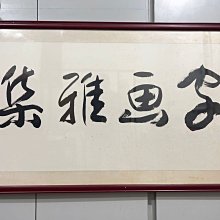 字画雅集